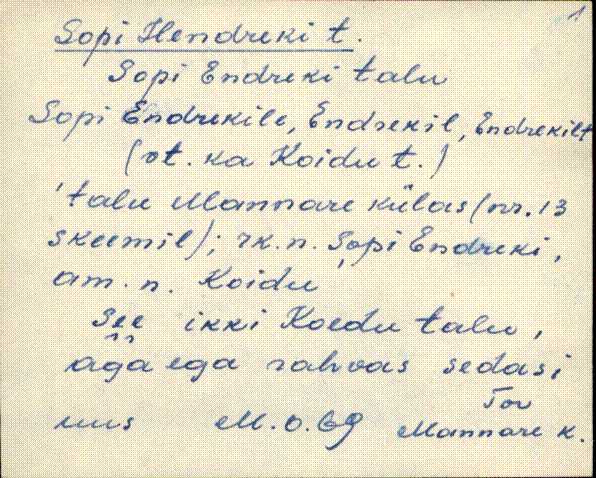 1
Sopi Hendreki t.
Sopi Endreki talu
Sopi Endrekile, Endrekil, Endrekilt
(vt. ka Koidu t.)
'talu Mannare külas (nr. 13
skeemil); rk. n. Sopi Endreki,
am. n. Koidu
See ikki Koedu talu,
aga ega rahvas sedasi
M.O. 69
Tov
Mannare k.